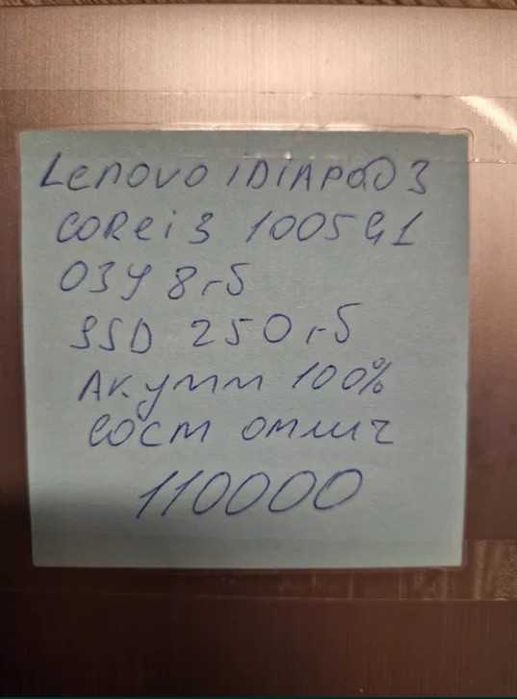 Lenovo iDiApad 3
CORe i3 1005G1
ОЗУ 8 гб
SSD 250 гб
Акумм 100%
Сост отлич
110000